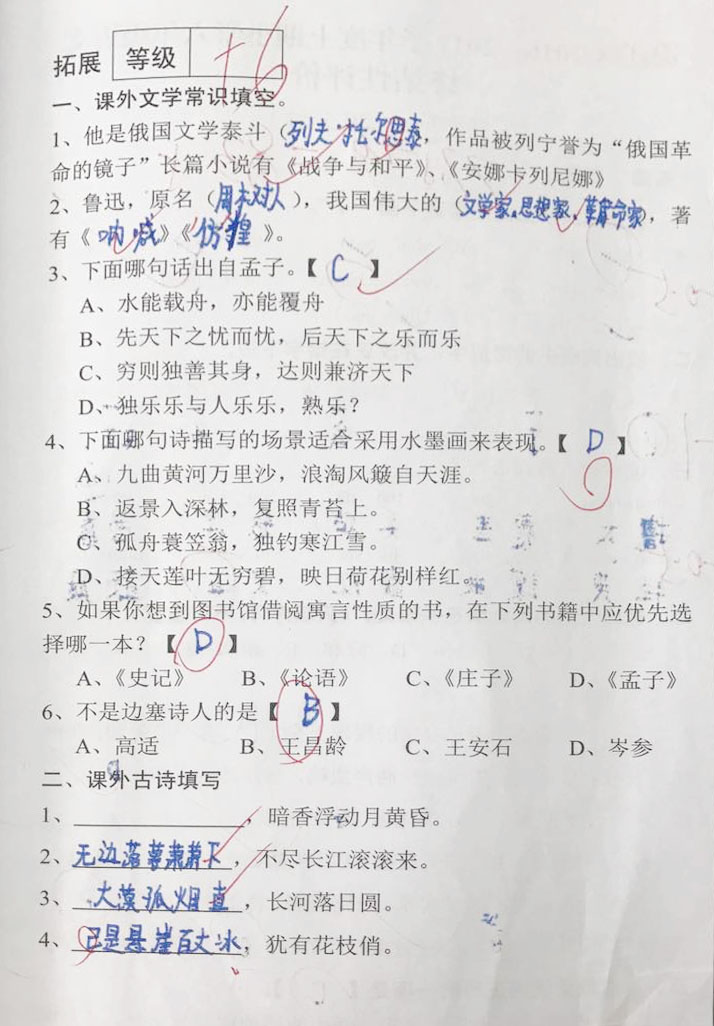 拓展 等级 +6
一、课外文学常识填空。
1、他是俄国文学泰斗（列夫·托尔思泰，作品被列宁誉为“俄国革
命的镜子”长篇小说有《战争与和平》、《安娜卡列尼娜》
2、鲁迅，原名（周木对人），我国伟大的（文学家。思想家，革命家，著
有《呐喊》《彷徨》。
3、下面哪句话出自孟子。【 C 】
A、水能载舟，亦能覆舟
B、先天下之忧而忧，后天下之乐而乐
C、穷则独善其身，达则兼济天下
D、独乐乐与人乐乐，熟乐？
4、下面哪句诗描写的场景适合采用水墨画来表现。【 D 】
A、九曲黄河万里沙，浪淘风簸自天涯。
B、返景入深林，复照青苔上。
C、孤舟蓑笠翁，独钓寒江雪。
D、接天莲叶无穷碧，映日荷花别样红。
5、如果你想到图书馆借阅寓言性质的书，在下列书籍中应优先选
择哪一本？【 D 】
A、《史记》 B、《论语》 C、《庄子》 D、《孟子》
6、不是边塞诗人的是【 B 】
A、高适 B、王昌龄 C、王安石 D、岑参
二、课外古诗填写
1、，暗香浮动月黄昏。
2、无边落萧萧下，不尽长江滚滚来。
3、大漠孤烟直，长河落日圆。
4、已是悬崖百丈冰，犹有花枝俏。